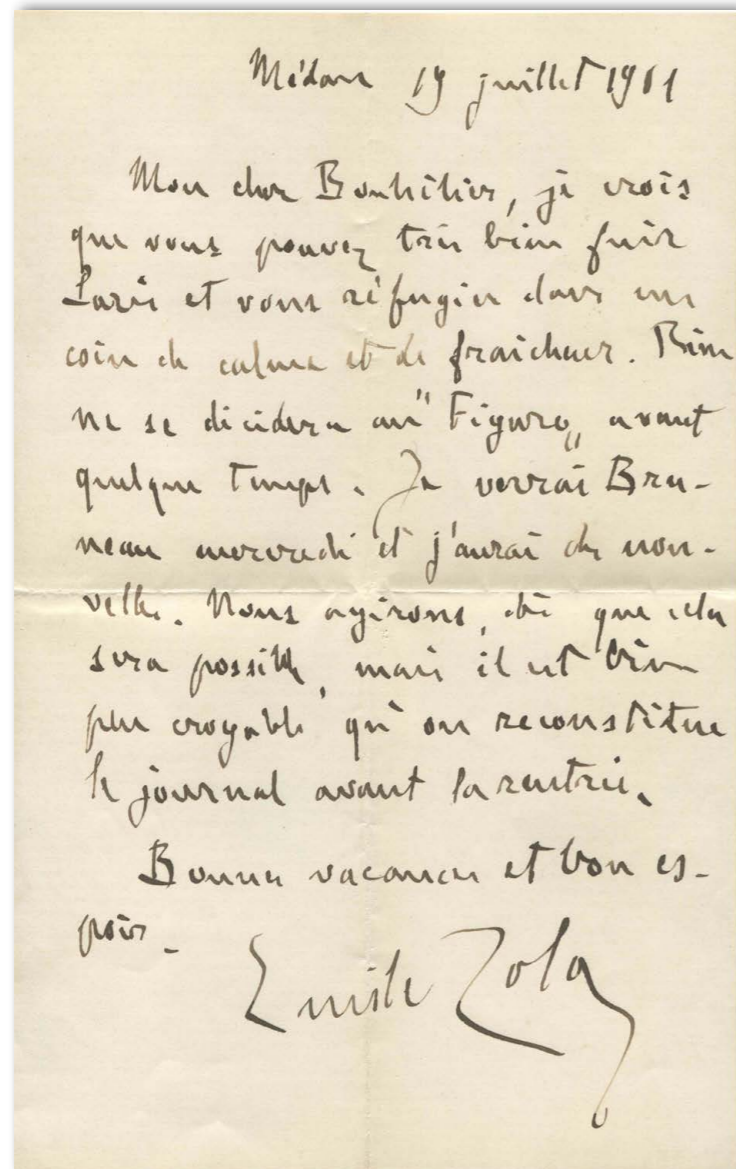 Médan 19 juillet 1901
Mon cher Bouhélier, je crois
que vous pouvez très bien fuir
Paris et vous réfugier dans un
coin de calme et de fraîcheur. Rien
ne se décidera au "Figaro" avant
quelque temps. Je verrai Bru-
neau mercredi et j'aurai des nou-
velles. Nous agirons, dès que cela
sera possible, mais il est bien
peu croyable qu'on reconstitue
le journal avant la rentrée.
Bonnes vacances et bon es-
poir.
Emile Zola